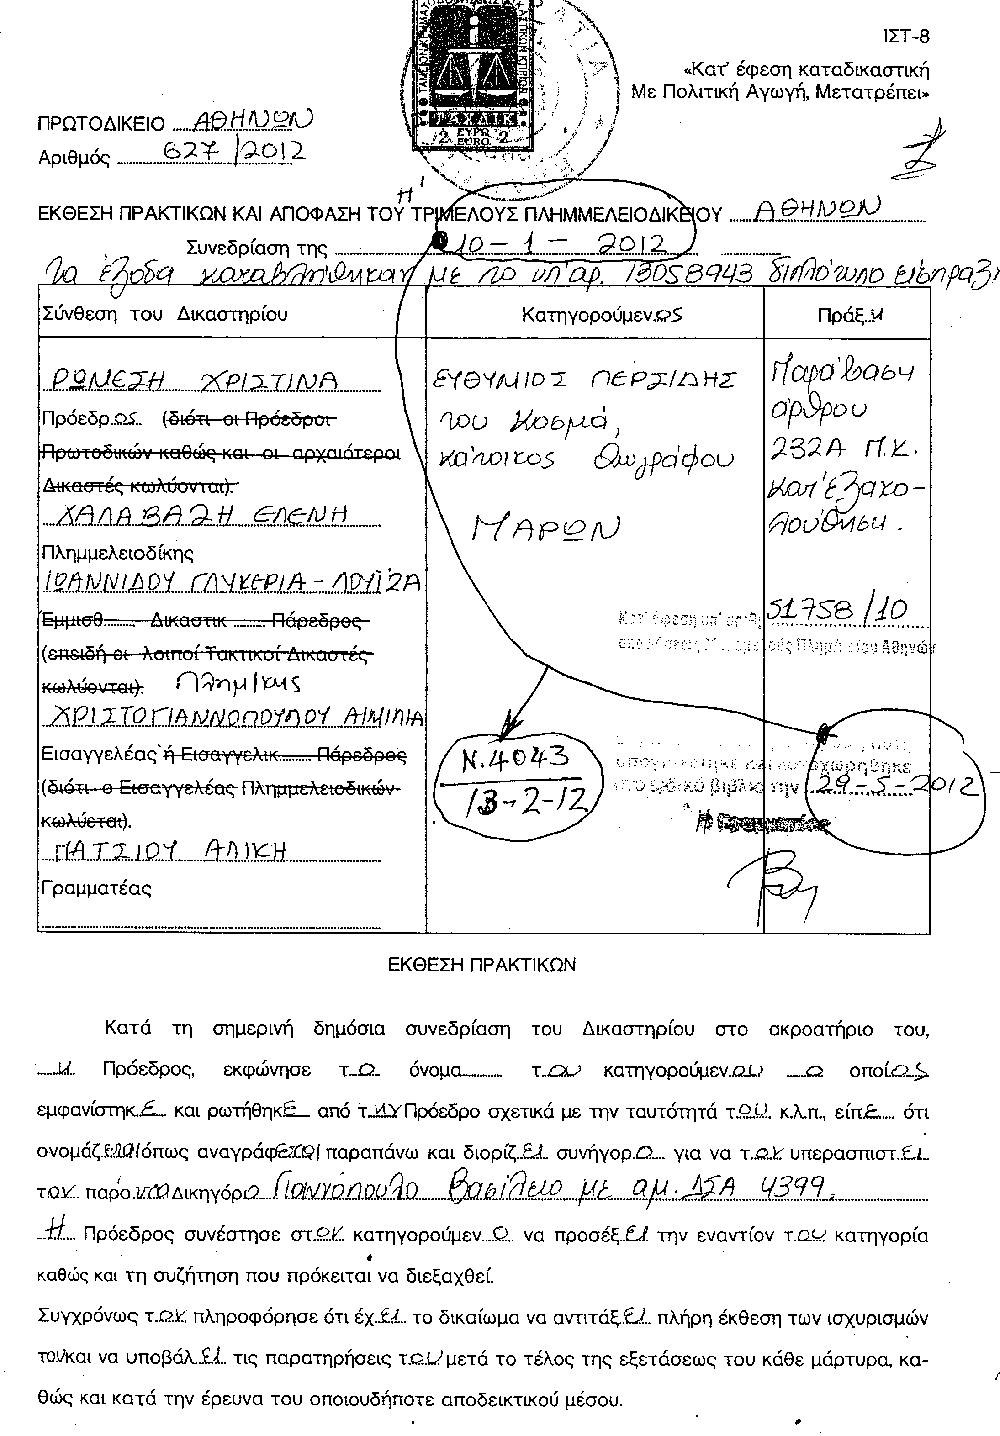 ΙΣΤ-8
«Κατ' έφεση καταδικαστική
Με Πολιτική Αγωγή, Μετατρέπει»
ΠΡΩΤΟΔΙΚΕΙΟ ΑΘΗΝΩΝ
Αριθμός 627/2012
2 ΕΥΡΩ EURO 2
Η'
ΕΚΘΕΣΗ ΠΡΑΚΤΙΚΩΝ ΚΑΙ ΑΠΟΦΑΣΗ ΤΟΥ ΤΡΙΜΕΛΟΥΣ ΠΛΗΜΜΕΛΕΙΟΔΙΚΕΙΟΥ ΑΘΗΝΩΝ
Συνεδρίαση της 10-1-2012
Τα έξοδα καταβλήθηκαν με το υπ' αρ. 13058943 διπλότυπο είσπραξ
Σύνθεση του Δικαστηρίου
ΡΩΝΕΣΗ ΧΡΙΣΤΙΝΑ
Πρόεδρ.ος. (διότι οι Πρόεδροι
Πρωτοδικών καθώς και οι αρχαιότεροι
Δικαστές κωλύονται).
ΧΑΛΑΒΑΖΗ ΕΛΕΝΗ
Πλημμελειοδίκης
ΙΩΑΝΝΙΔΟΥ ΓΛΥΚΕΡΙΑ-ΛΟΥΙΖΑ
Εμμισθ...... Δικαστικ ...... Πάρεδρος
(επειδή οι λοιποί Τακτικοί Δικαστές
κωλύονται). Πλημ/κης
ΧΡΙΣΤΟΓΙΑΝΝΟΠΟΥΛΟΥ ΑΙΜΙΛΙΑ
Εισαγγελέας ή Εισαγγελικ...... Πάρεδρος
(διότι ο Εισαγγελέας Πλημμελειοδικών
κωλύεται).
ΠΑΤΣΙΟΥ ΑΛΙΚΗ
Γραμματέας
Κατηγορούμεν.ος
ΕΥΘΥΜΙΟΣ ΠΕΡΣΙΔΗΣ
του Κοσμά,
κάτοικος Ζωγράφου
ΜΑΡΩΝ
Ν.4043
13-2-12
Πράξ.η
Παράβαση
άρθρου
232Α Π.Κ.
κατ' εξακο-
λούθηση.
Κατ' έφεση υπ' αρ. 51758/10
Πλημ/κείου Αθηνών
καταχωρήθηκε
στο ειδικό βιβλίο την 29-5-2012
Η Γραμματέας
ΕΚΘΕΣΗ ΠΡΑΚΤΙΚΩΝ
Κατά τη σημερινή δημόσια συνεδρίαση του Δικαστηρίου στο ακροατήριο του,
.....η. Πρόεδρος, εκφώνησε τ.ο. όνομα........ τ.ου κατηγορούμεν.ου ...ο οποί.ος
εμφανίστηκ.ε.. και ρωτήθηκ.ε.. από τ.ην Πρόεδρο σχετικά με την ταυτότητά τ.ου. κ.λ.π., είπ.ε... ότι
ονομάζ.εται όπως αναγράφεται παραπάνω και διορίζ.ει συνήγορ.ο... για να τ.ον υπερασπιστ.εί.
τον παρόντα Δικηγόρο Γιαννόπουλο Βασίλειο με αμ. ΔΣΑ 4399.
..Η... Πρόεδρος συνέστησε στ.ον. κατηγορούμεν..ο. να προσέξ.ει την εναντίον τ.ου κατηγορία
καθώς και τη συζήτηση που πρόκειται να διεξαχθεί.
Συγχρόνως τ.ον. πληροφόρησε ότι έχ.ει.. το δικαίωμα να αντιτάξ.ει.. πλήρη έκθεση των ισχυρισμών
του και να υποβάλ.ει.. τις παρατηρήσεις τ.ου μετά το τέλος της εξετάσεως του κάθε μάρτυρα, κα-
θώς και κατά την έρευνα του οποιουδήποτε αποδεικτικού μέσου.